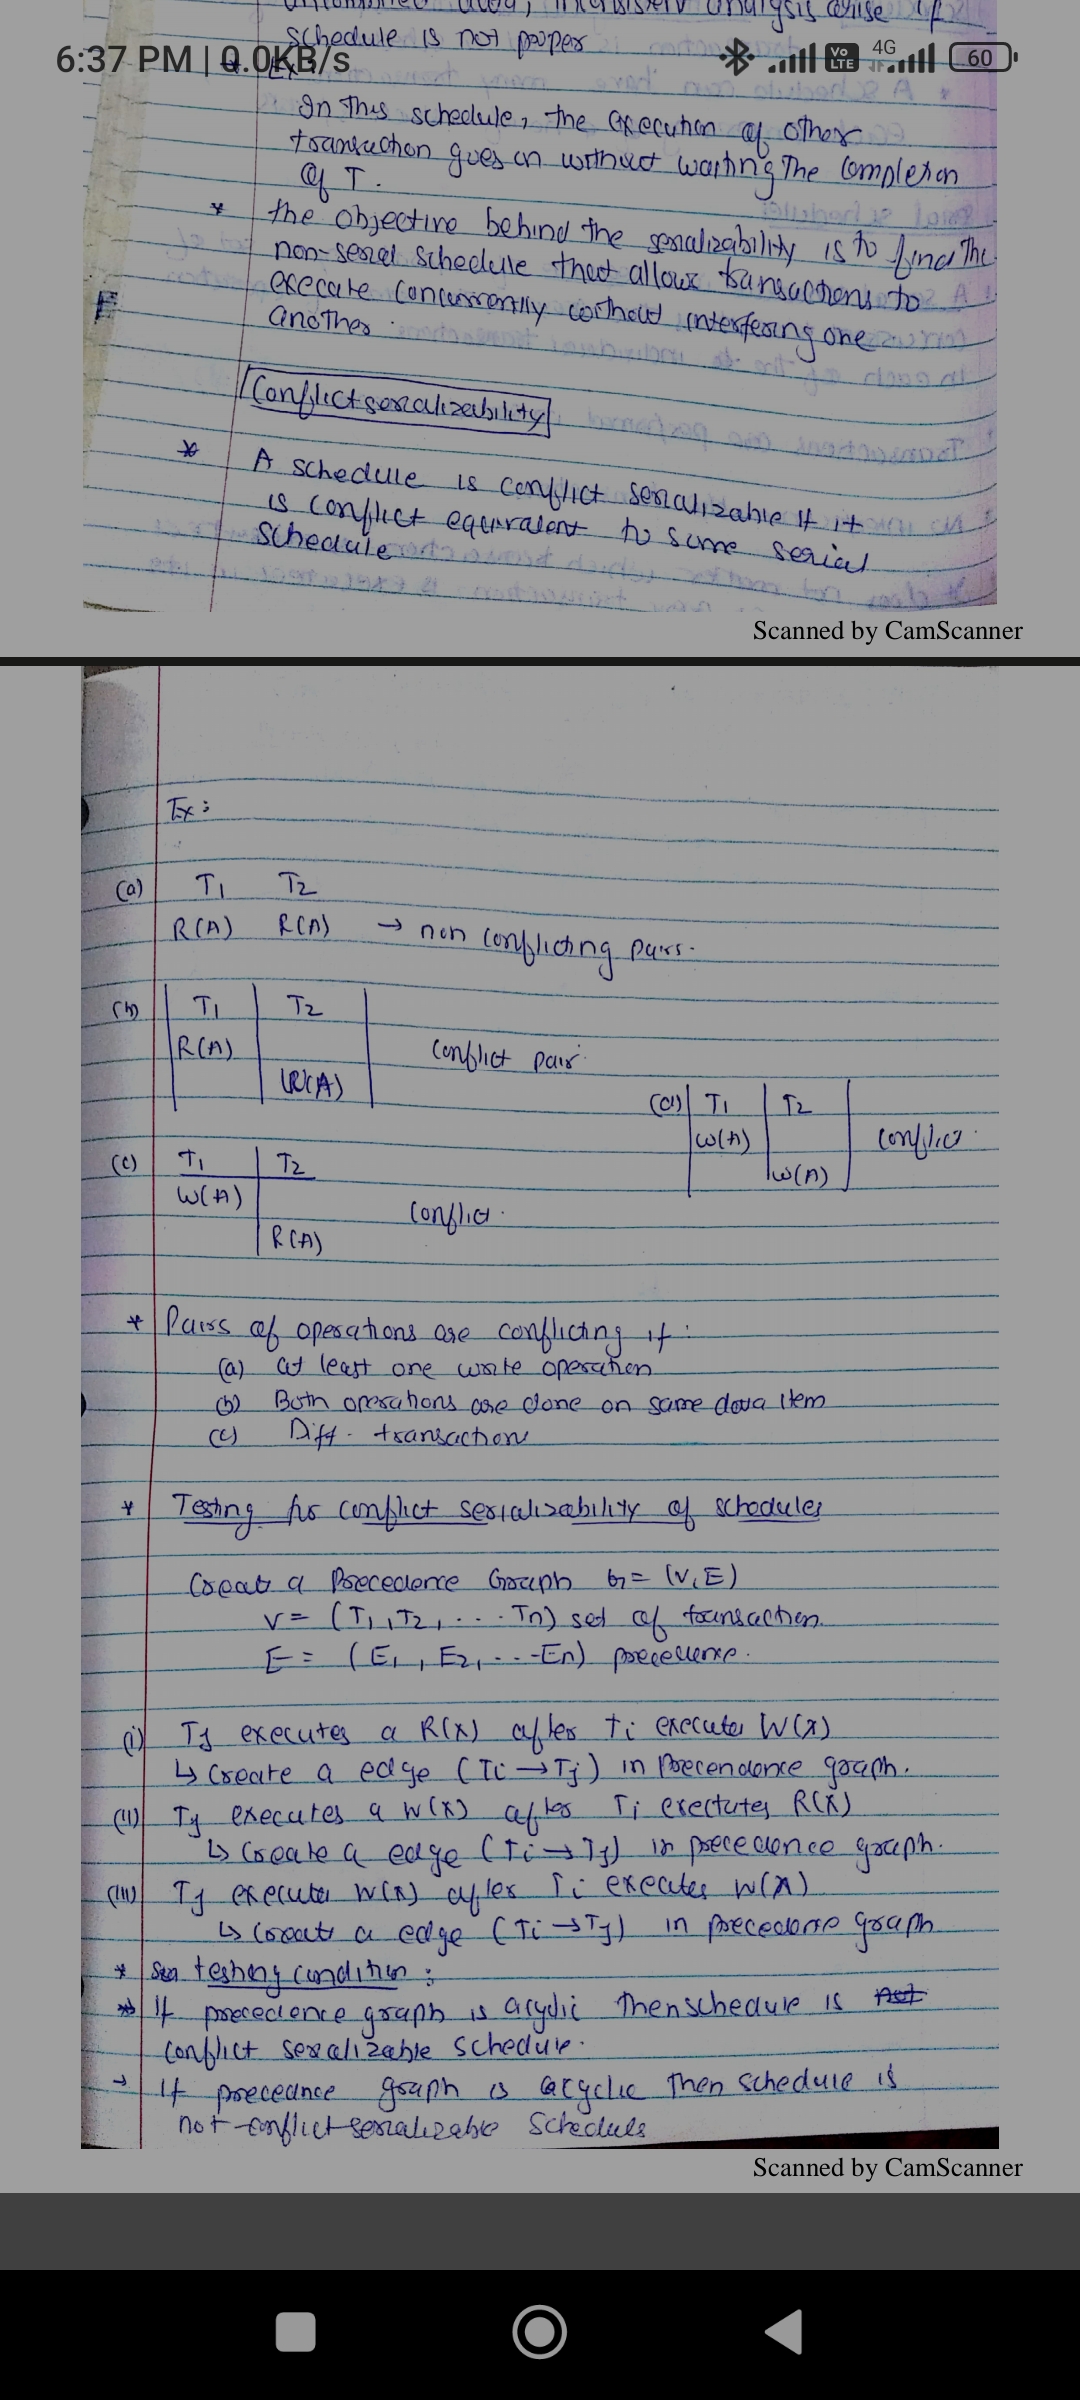 schedule is not proper
6:37 PM | 0.0KB/s Vo LTE 4G 60
Ex:
In this schedule, the execution of other
transaction goes on without waiting The completion
of T.
* the objective behind the serializability is to find The
non-serial schedule that allows transactions to
execute concurrently without interfering one
another.
Conflict serializability
* A schedule is conflict serializable if it
is conflict equivalent to some serial
schedule
Scanned by CamScanner
Ex:
(a) T1 T2
R(A) R(A) → non conflicting pairs.
(b) T1 T2
R(A)
conflict pair.
W(A)
(d) T1 T2
W(A) conflict.
W(A)
(c) T1 T2
W(A)
conflict.
R(A)
* Pairs of operations are conflicting if:
(a) at least one write operation
(b) Both operations are done on same data item
(c) Diff. transaction
* Testing for conflict serializability of schedules
Create a Precedence Graph G = (V,E)
V = (T1, T2, ... Tn) set of transaction.
E = (E1, E2, ... En) precedence.
(i) Tj executes a R(X) after Ti executes W(X)
↳ Create a edge (Ti → Tj) in Precendence graph.
(ii) Tj executes a W(X) after Ti exectutes R(X)
↳ Create a edge (Ti → Tj) in precedence graph.
(iii) Tj executes W(X) after Ti executes W(X)
↳ Create a edge (Ti → Tj) in precedence graph
* testing condition:
If precedence graph is acyclic Then schedule is not
conflict serializable schedule.
→ If precedence graph is acyclic Then schedule is
not conflict serializable schedule
Scanned by CamScanner